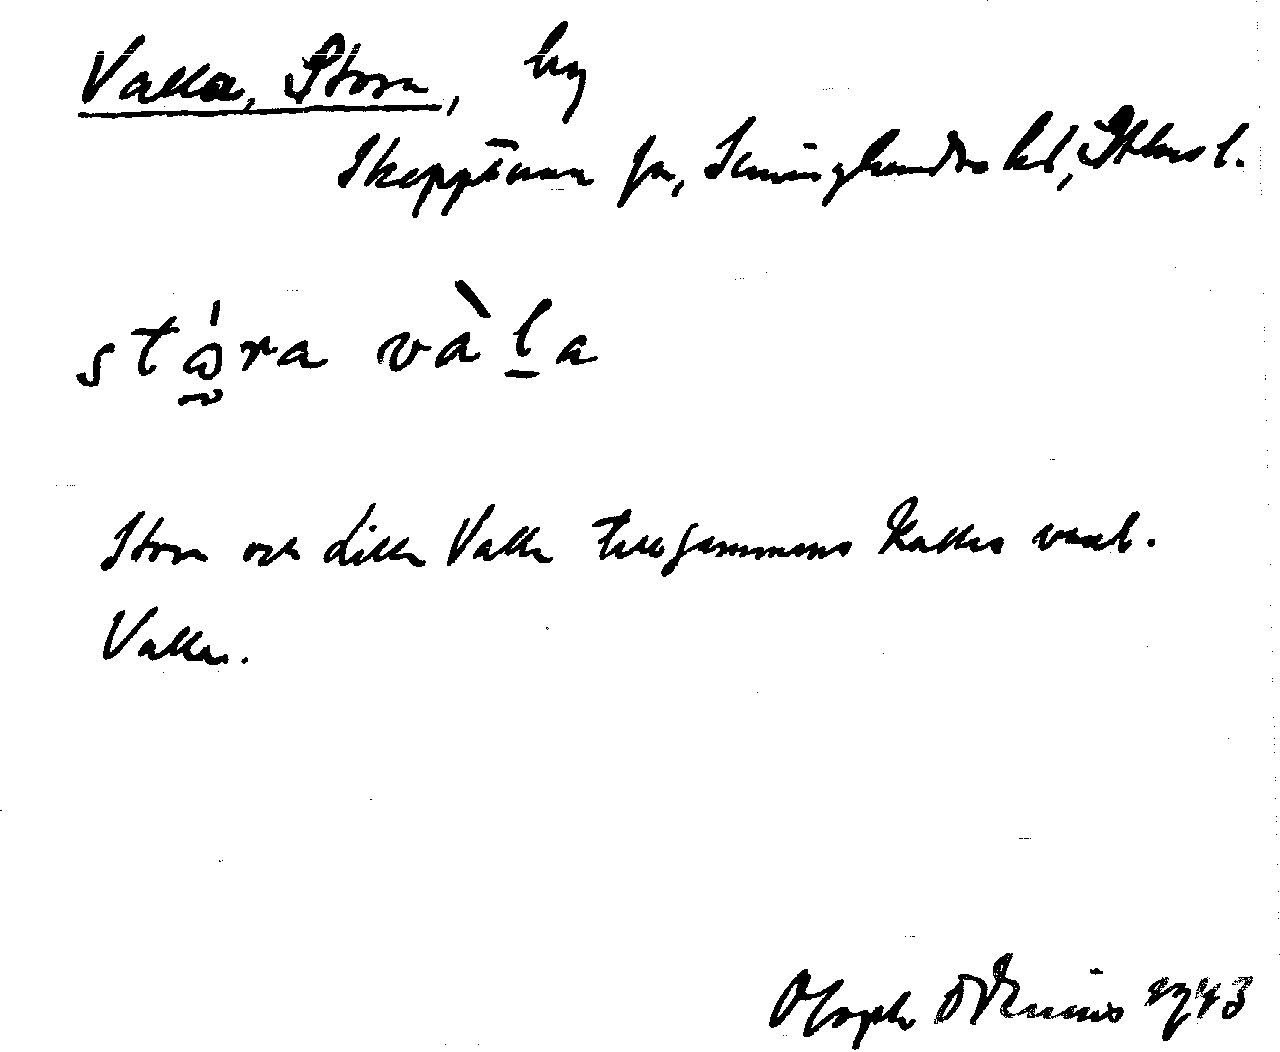 Valla, Stora, by
Skepptuna sn, Seminghundra hd, Sthms l.
stɷ́ra vàl̠a
Stora och Lilla Valla tillsammans kallas vanl.
Valla.
Oloph Odenius 1943